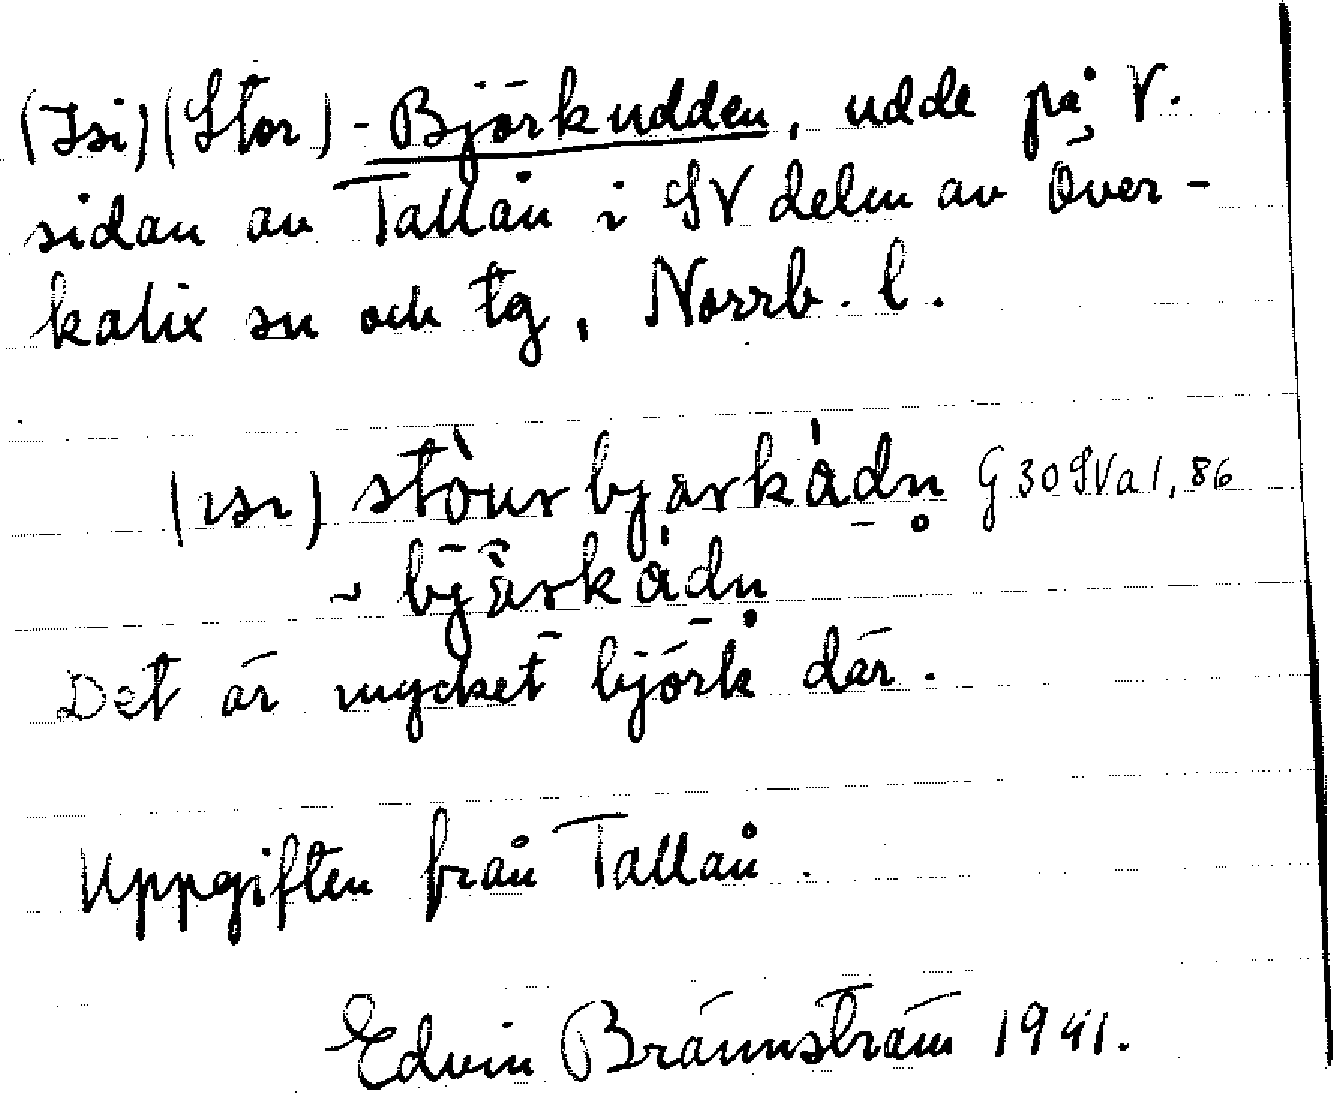 (Isi)(Stor)-Björkudden, udde på V.
sidan av Tallån i SV delen av Över-
kalix sn och tg, Norrb. l.
(ısı) stòurbjärkådn̥ G 30 SVa 1, 86
~ bjärkådn̥
Det är mycket björk där.
Uppgiften från Tallån.
Edvin Brännström 1941.